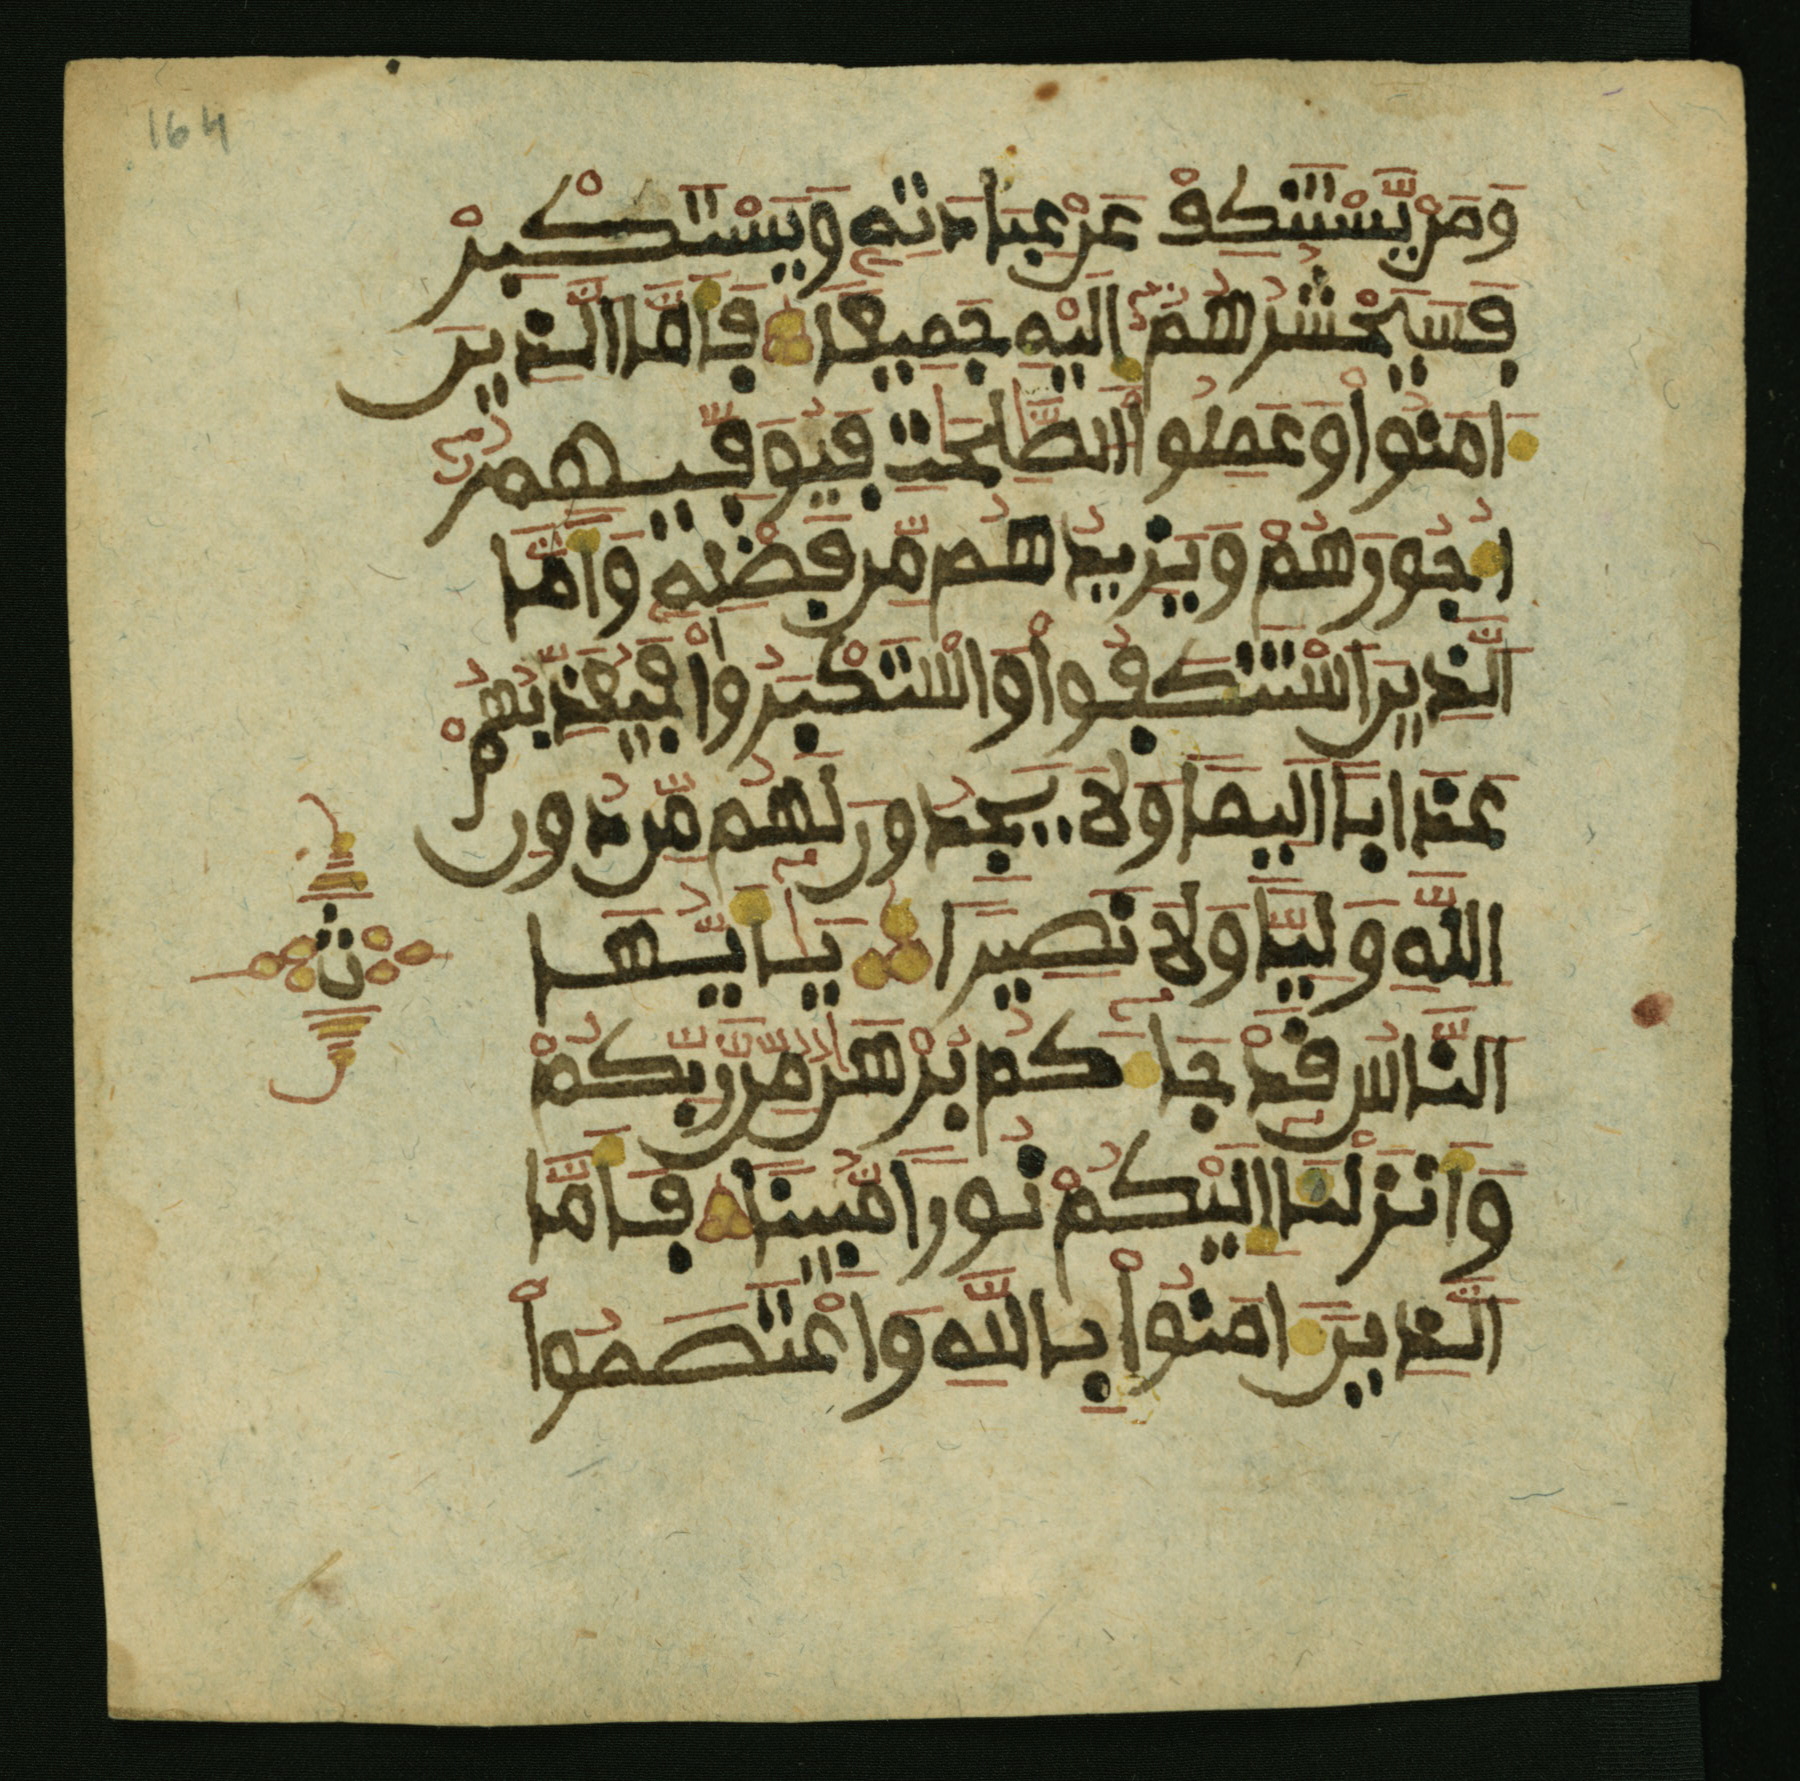 164
وَمَنْ يَّسْتَنكِفْ عَنْ عِبَادَتِهِ وَيَسْتَكْبِرْ
فَسَيَحْشُرُهُمُ إِلَيْهِ جَمِيعًا فَأَمَّا الَّذِينَ
ءَامَنُواْ وَعَمِلُواْ الصَّٰلِحَٰتِ فَيُوَفِّيهِمُ
أُجُورَهُمْ وَيَزِيدُهُم مِّن فَضْلِهِ وَأَمَّا
الَّذِينَ اسْتَنكَفُواْ وَاسْتَكْبَرُواْ فَيُعَذِّبُهُمْ
عَذَابًا أَلِيمًا وَلَا يَجِدُونَ لَهُم مِّن دُونِ
اللَّهِ وَلِيًّا وَلَا نَصِيرًا يَٰأَيُّهَا
النَّاسُ قَدْ جَاءَكُم بُرْهَٰنٌ مِّن رَّبِّكُمْ
وَأَنزَلْنَا إِلَيْكُمْ نُورًا مُّبِينًا فَأَمَّا
الَّذِينَ ءَامَنُواْ بِاللَّهِ وَاعْتَصَمُواْ